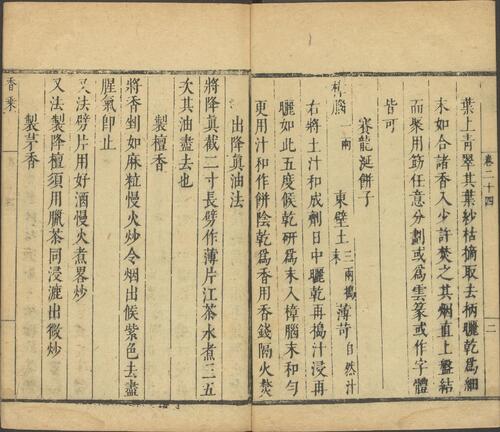 葉上青翠其葉紗枯摘取去柄曬乾為細
末如合諸香入少許焚之其烟直上盤結
而聚用筯任意分劃或為雲篆或作字體
皆可
賽龍涎餅子
樟腦一兩 東壁土三兩搗末 薄荷自然汁
右將土汁和成劑日中曬乾再搗汁浸再
曬如此五度候乾研為末入樟腦末和勻
更用汁和作餅陰乾為香用香錢隔火焚
卷二十四
二
出降真油法
將降真截二寸長劈作薄片江茶水煮三五
次其油盡去也
製檀香
將香剉如麻粒慢火炒令烟出候紫色去盡
腥氣卽止
又法劈片用好酒慢火煮畧炒
又法製降檀須用臘茶同浸滬出微炒
製茅香
香乘